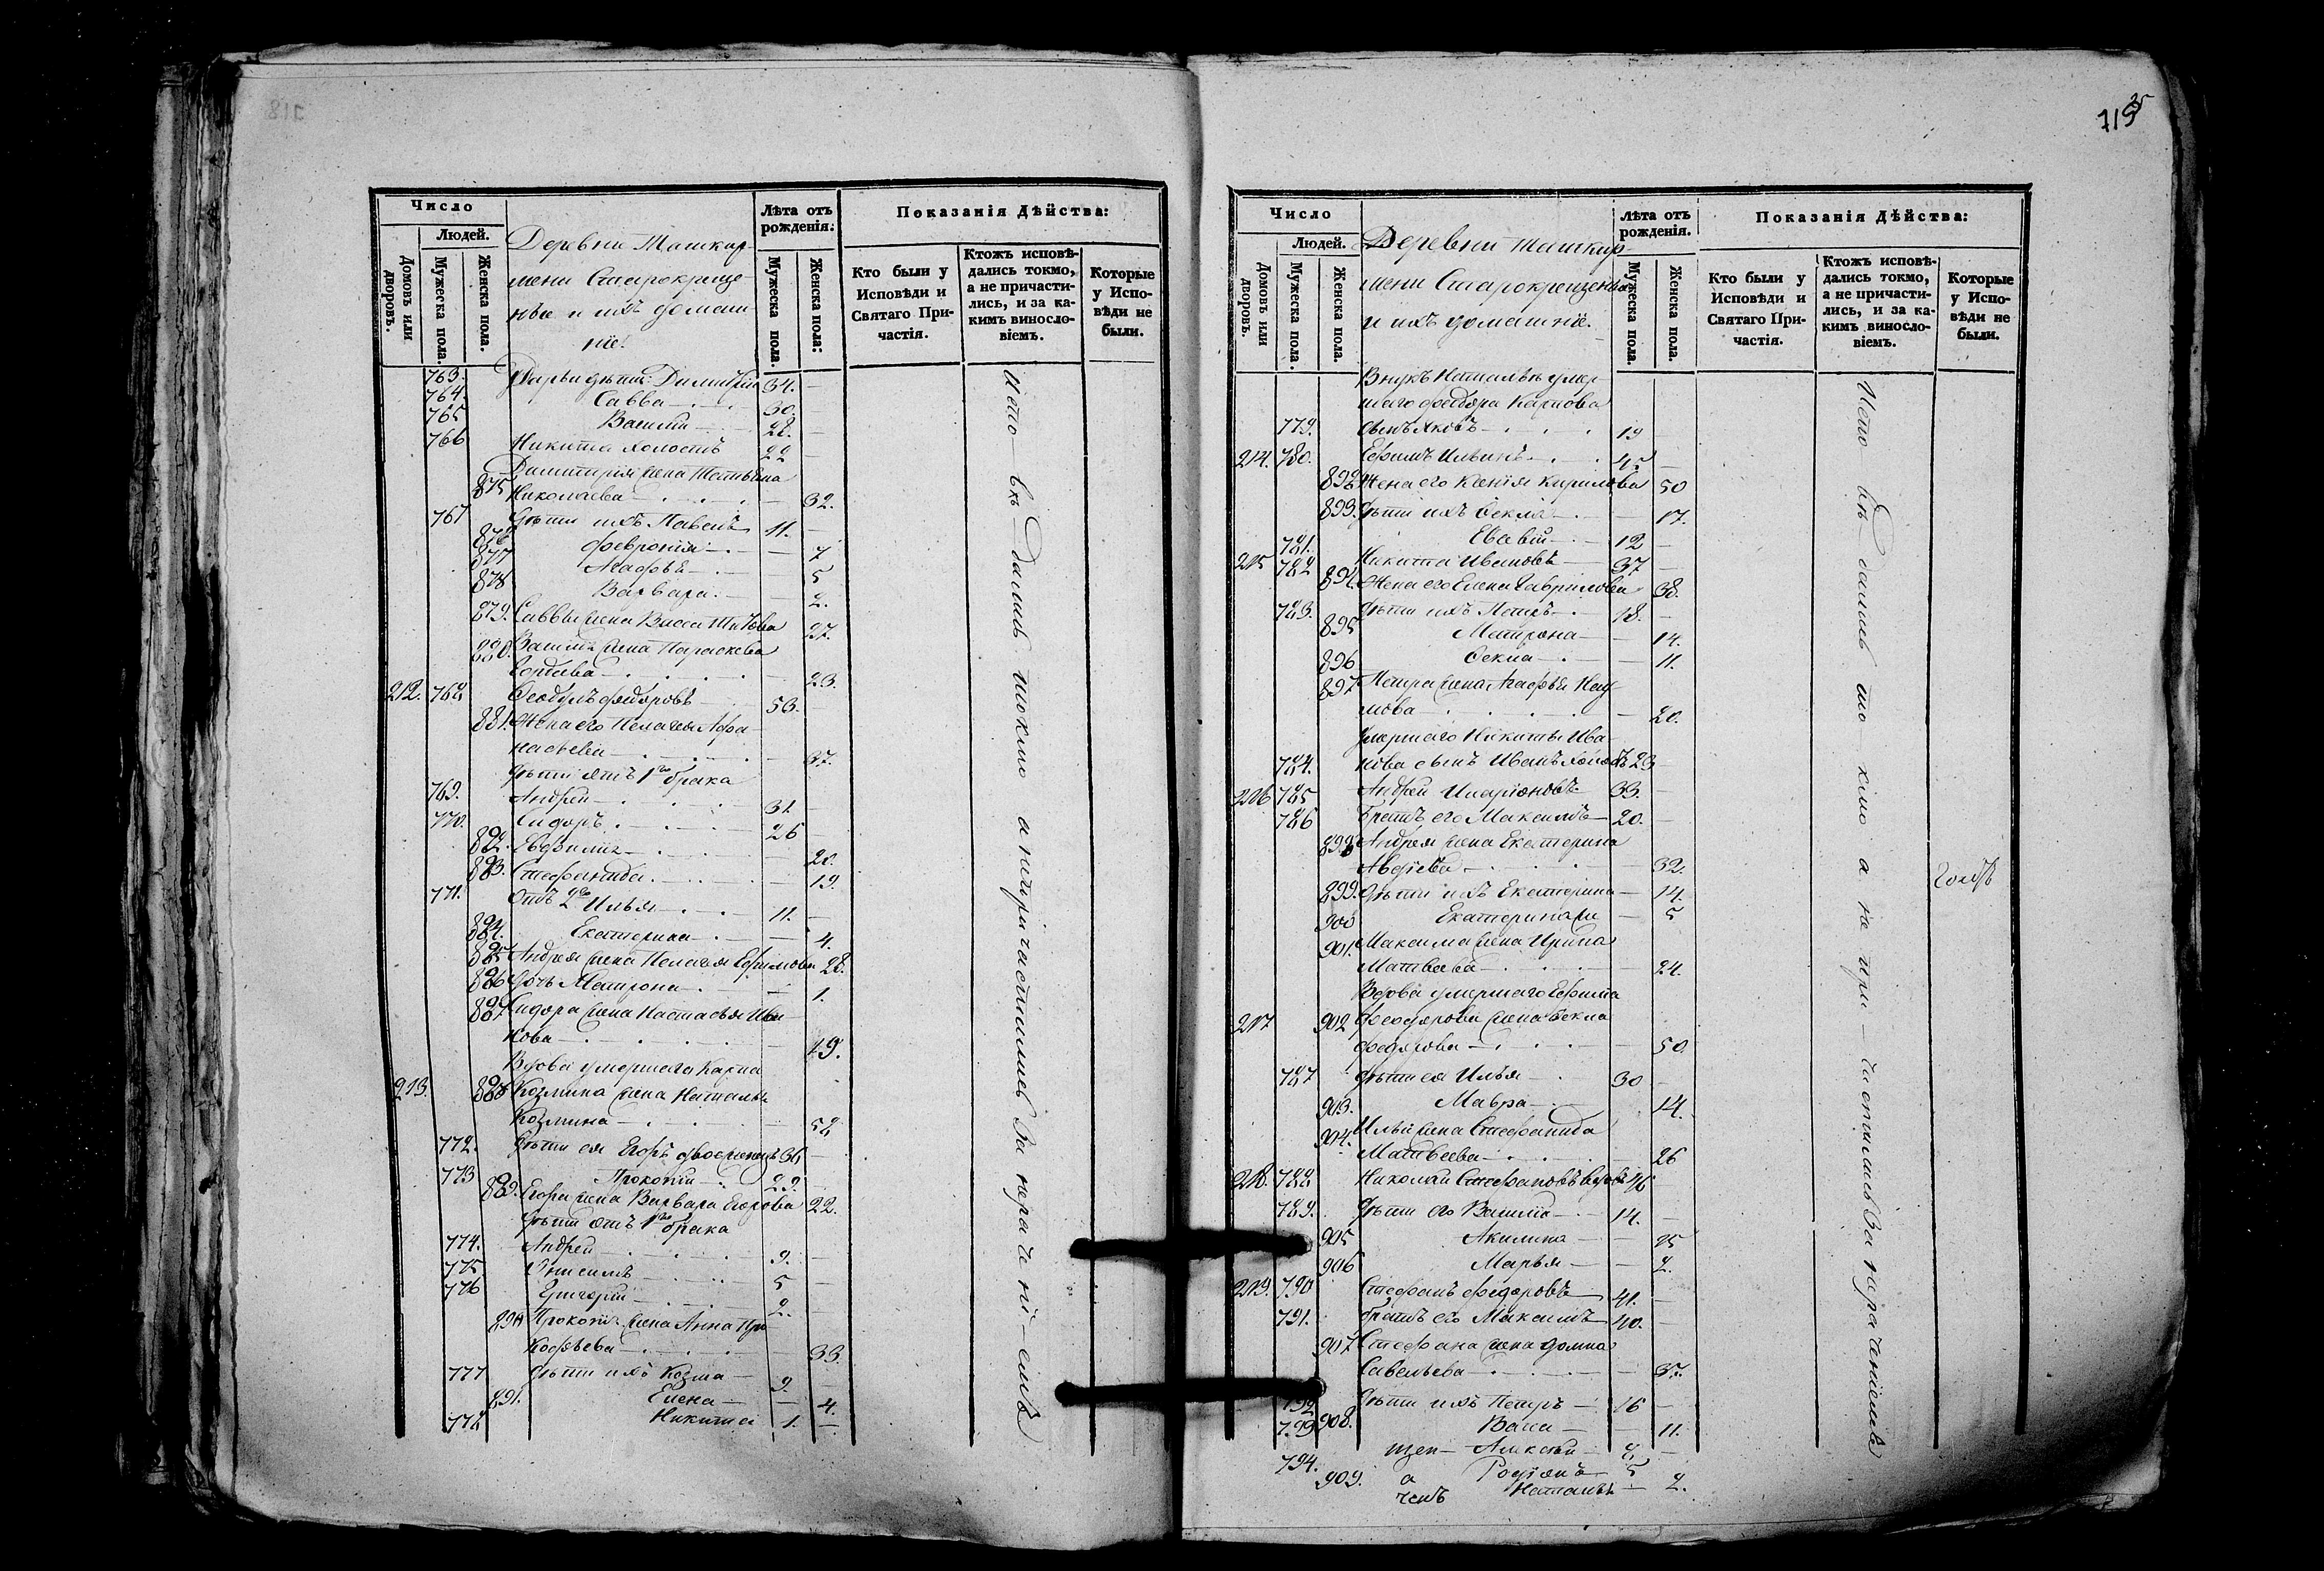 Число
Людей.
Домовъ или дворовъ.
Мужеска пола.
Женска пола.
Деревни Ташкир-
мени Старокреще-
ные и ихъ домаш
ніе.
Лѣта отъ рожденія:
Мужеска пола
Женска пола:
Показанія Дѣйства:
Кто были у Исповѣди и Святаго Причастія.
Ктожъ исповѣдались токмо, а не причастились, и за какимъ винословіемъ.
Которые у Исповѣди не были.
763. Дарьи дѣти: Димитрій 34. —
764. Савва — 30. —
765 Василій 28. —
766 Никита холостъ 22 —
Димитрія жена Татьяна
875 Николаева — 32.
767 Дѣти ихъ Павелъ 11. —
876 Феврониія — 7
877 Агафья — 5
878 Варвара. — 2.
879. Саввы жена Васса Титова 27.
880. Василія жена Параскева
Гордѣева — 23.
212. 768 Ѳеодулъ Федоровъ 53. —
881. Жена его Пелагея Афа-
насьева — 37.
Дѣти отъ 1го брака
769. Андрей — 31
770. Сидоръ — 26 —
882. Евфимія — 20.
883. Стефанида. — 19.
771. Отъ 2го Илья — 11. —
884. Екатерина — 4.
885 Андрея жена Пелагея Ефимова 28.
886 Дочь Матрона — 1.
887 Сидора жена Настасья Ива-
нова — 19.
Вдова умершаго Карпа
213. 888 Козмина жена Наталья
Козмина — 52
772. Дѣти ея Егоръ 36 —
773 Прокопій — 29. —
889. Егора жена Варвара Егорова 22.
Дѣти отъ 1го брака
774. Андрей — 9. —
775 Онисимъ — 5 —
776 Григорій — 2. —
890 Прокопія жена Анна Про
кофьева — 33.
777 Дѣти ихъ Козма — 9.
891. Елена — 4.
778 Никита 1. —
Исповѣдались токмо а непричастились за нераченіемъ
715
Число
Людей.
Домовъ или дворовъ.
Мужеска пола
Женска пола.
Деревни Ташкир-
мени Старокрещеные
и ихъ домашніе.
Лѣта отъ рожденія.
Мужеска пола.
Женска пола.
Показанія Дѣйства:
Кто были у Исповѣди и Святаго Причастія.
Ктожъ исповѣдались токмо, а не причастились, и за какимъ винословіемъ.
Которые у Исповѣди не были.
Внукъ Натальи умер-
шаго Федора Карпова
779. сынъ Яковъ — 19 —
214. 780. Ефимъ Ильинъ — 45 —
892 Жена его Ксенія Кирилова 50
893. Дѣти ихъ Ѳекла — 17.
781. Евсевій — 12 —
215 782 Никита Ивановъ — 37. —
894. Жена его Елена Гаврилова 38.
783. Дѣти ихъ Петръ — 18. —
895 Матрона — 14.
896 Ѳекла — 11.
897 Петра жена Агафья Нау-
мова — 20.
Умершаго Никиты Ива-
784. нова сынъ Иванъ холостъ 23
216 785 Андрей Иларіоновъ 33. —
786 Братъ его Максимъ — 20. —
898 Андрея жена Екатерина
Авдѣева — 32.
899. Дѣти ихъ Екатерина — 14.
900 Екатерина — 5
901. Максима жена Ирина
Матвеева — 24.
Вдова умершаго Ефима
217 902 Феодорова жена Ѳекла
Федорова — 50.
787 Дѣти ея Илья — 30 —
903. Мавра — 14.
904. Ильи жена Стефанида
Матвеева — 26
218. 788 Николай Стефановъ вдовъ 46
789. Дѣти его Василій — 14. —
905 Акилина — 25
906 Марья — 2.
219. 790 Стефанъ Федоровъ 41. —
791. Братъ его Максимъ — 40. —
907 Стефана жена Домна
Савельева — 37.
792 Дѣти ихъ Петръ — 16 —
793 908. Васса — 11.
Алексѣй — 8. —
794. Родіонъ 5
909. Наталья — 2.
Исповѣдались токмо а не причастились за нераченіемъ